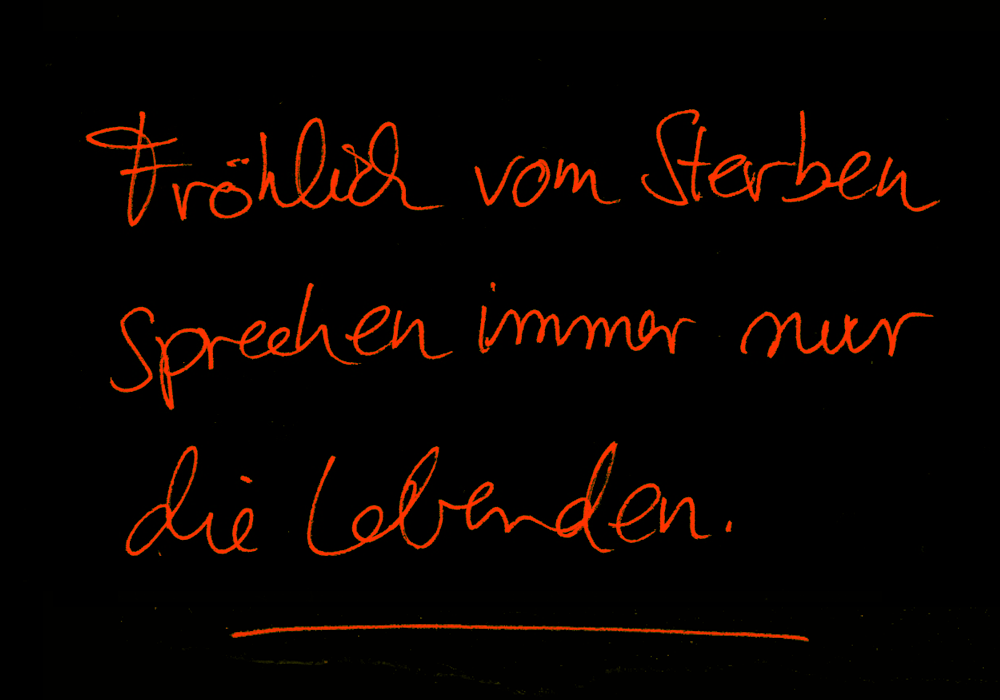 Fröhlich vom Sterben
sprechen immer nur
die Lebenden.